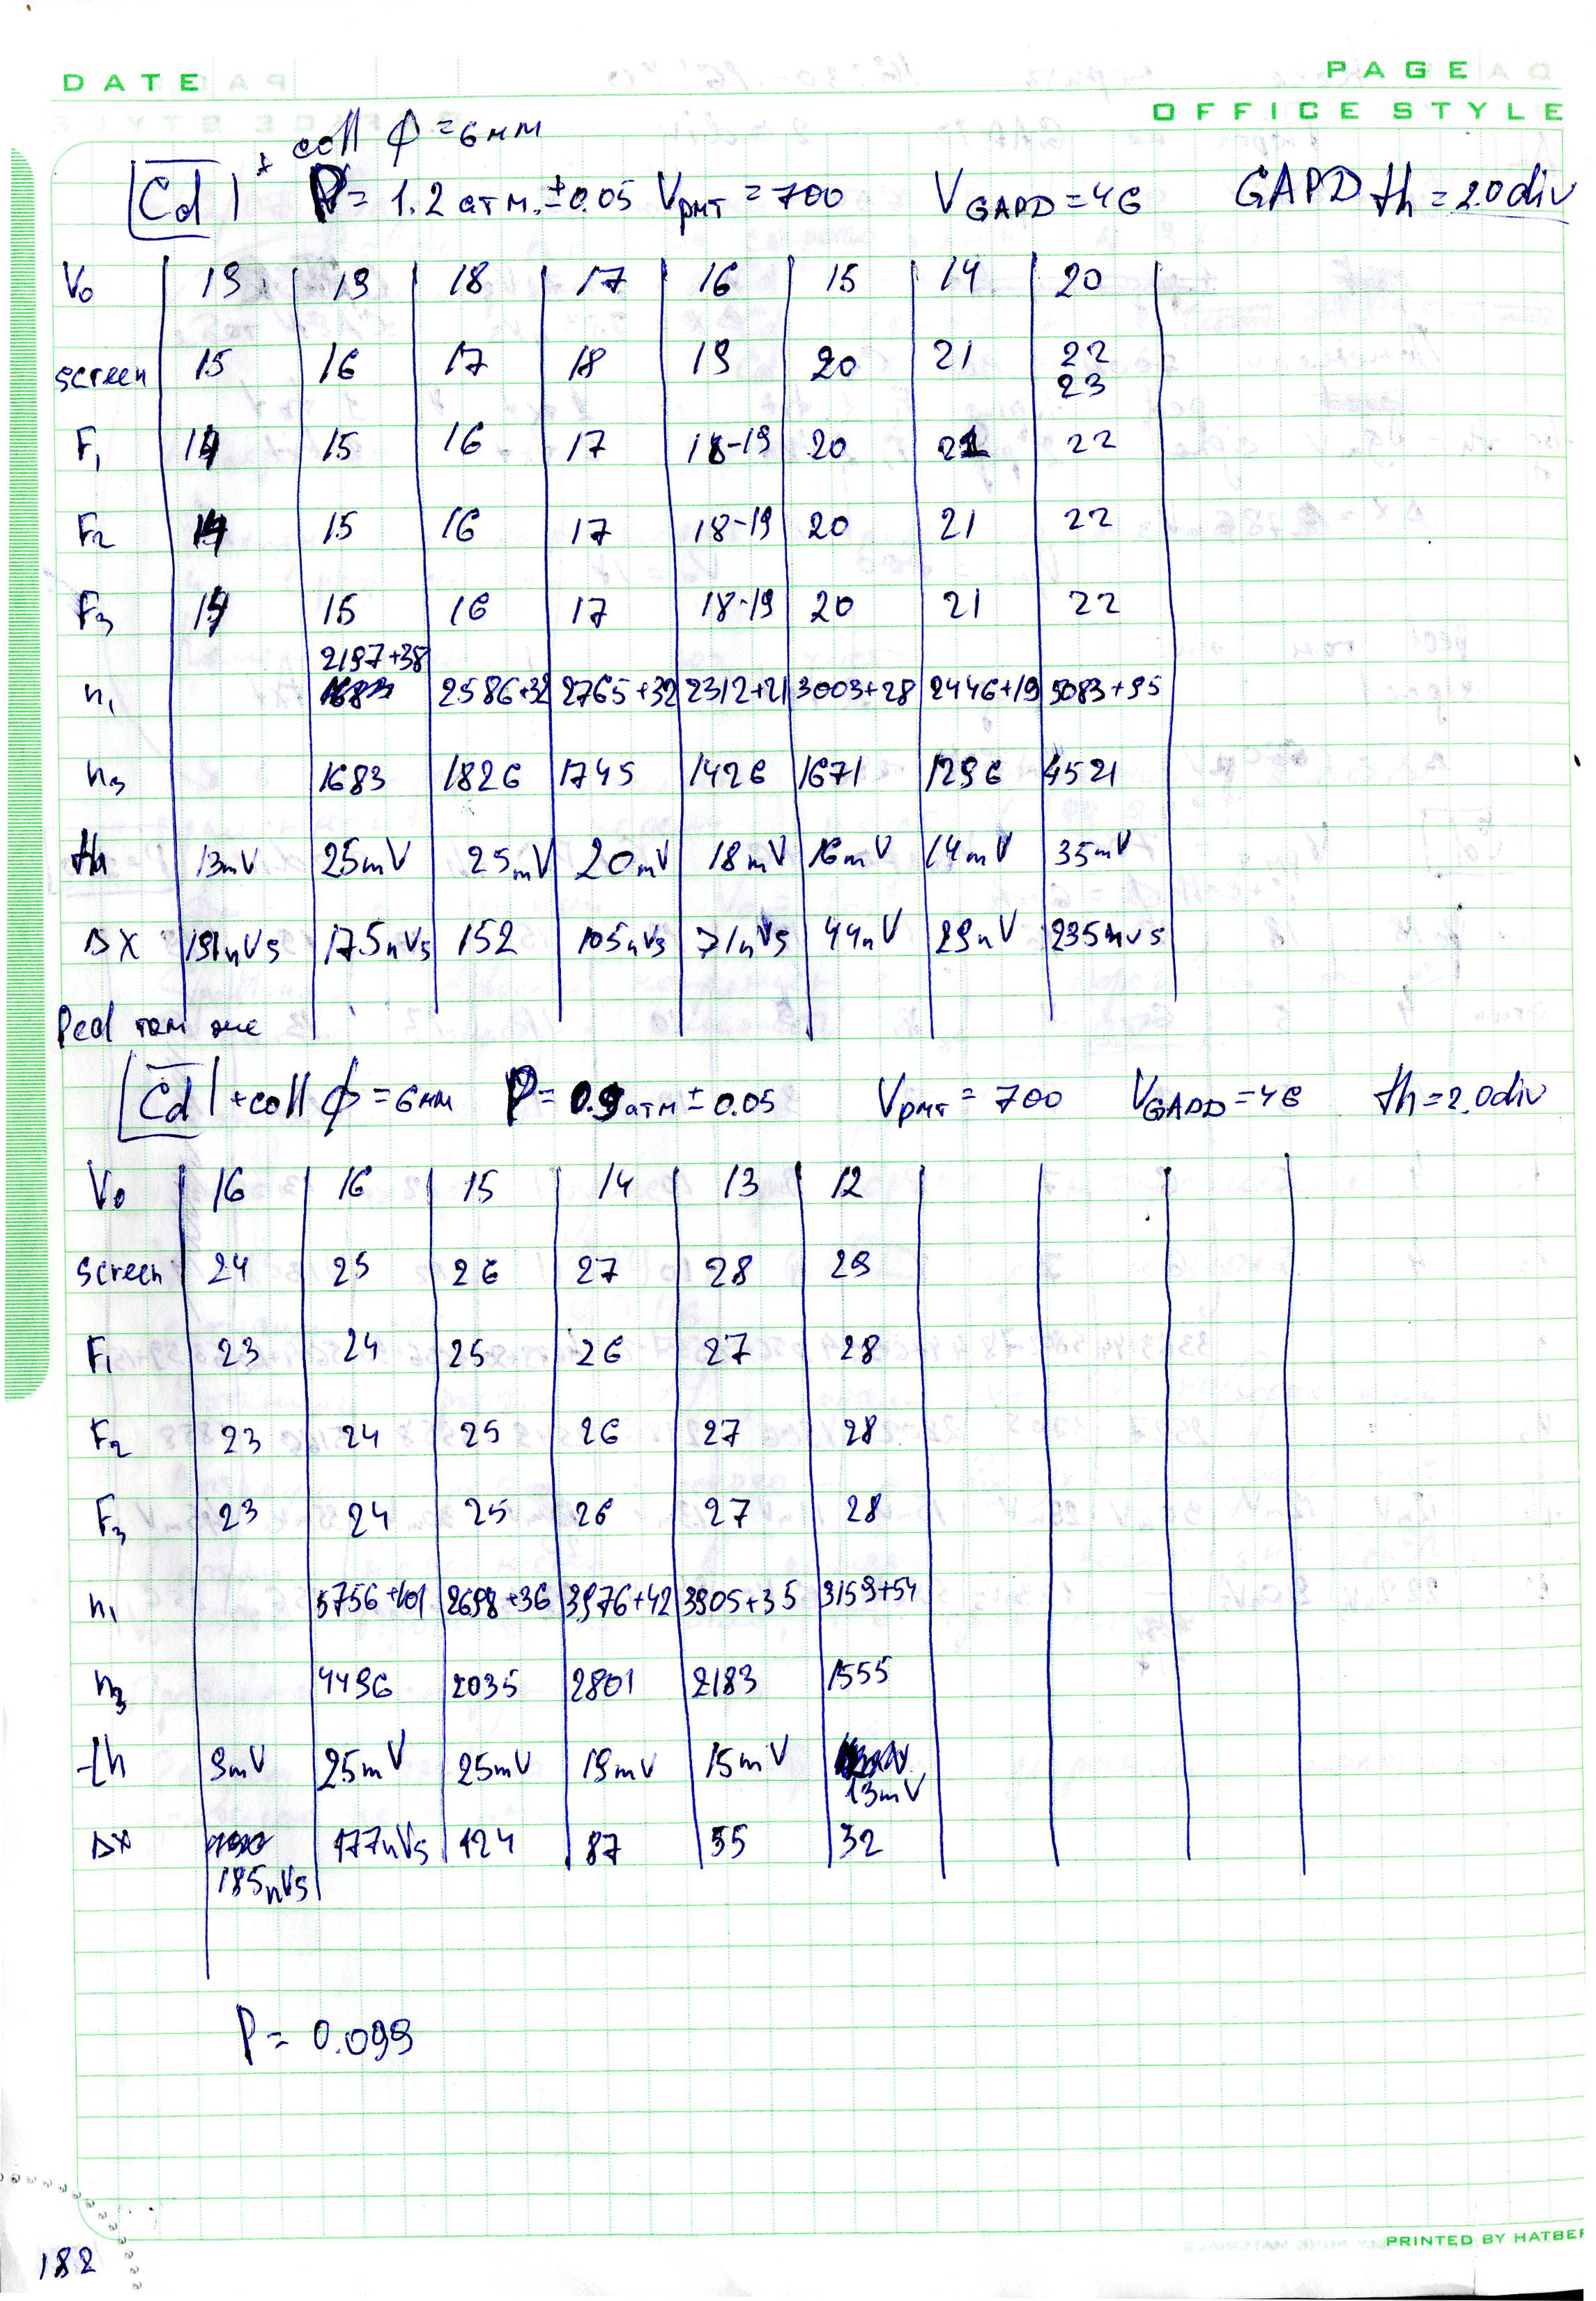 DATE
PAGE
OFFICE STYLE
coll ϕ = 6мм
Cd + P = 1.2 атм. ± 0.05 Vрмт = 700 VGAPD = 46 GAPD th = 2.0 div
V₀ 19 19 18 17 16 15 14 20
screen 15 16 17 18 19 20 21 22
23
F₁ 14 15 16 17 18-19 20 21 22
F₂ 14 15 16 17 18-19 20 21 22
F₃ 14 15 16 17 18-19 20 21 22
2197+38
n₁ 2586+32 2765+32 2312+21 3003+28 2446+19 5083+95
n₃ 1683 1826 1745 1426 1671 1296 4521
th 13mV 25mV 25mV 20mV 18mV 16mV 14mV 35mV
ΔX 191nVs 175nVs 152 105nVs 71nVs 44nV 29nV 235nVs
Ped там же
Cd + coll ϕ = 6мм P = 0.9 атм ± 0.05 Vрмт = 700 VGAPD = 46 th = 2.0 div
V₀ 16 16 15 14 13 12
screen 24 25 26 27 28 29
F₁ 23 24 25 26 27 28
F₂ 23 24 25 26 27 28
F₃ 23 24 25 26 27 28
n₁ 5756+101 2698+36 3976+42 3905+35 3159+54
n₃ 4496 2035 2801 2183 1555
th 9mV 25mV 25mV 19mV 15mV
13mV
ΔX 177nVs 124 87 55 32
185nVs
P = 0.099
PRINTED BY HATBER
182